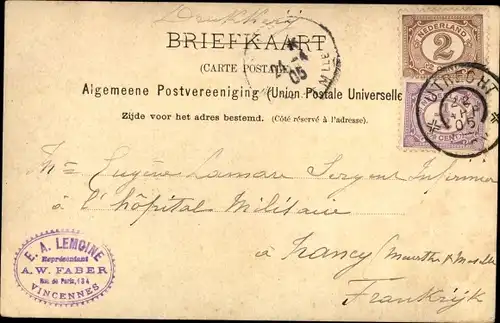 Drukkerij
BRIEFKAART
(CARTE POSTALE)
Algemeene Postvereeniging (Union Postale Universelle
Zijde voor het adres bestemd. (Côté réservé à l'adresse).
NEDERLAND
2
UTRECHT
CENT
05
Mr Eugène Lamare Sergent Infirmier
à l'hôpital Militaire
à Nancy (Meurthe & Moselle
Frankrijk
E. A. LEMOINE
Représentant
A. W. FABER
Rue de Paris, 134
VINCENNES